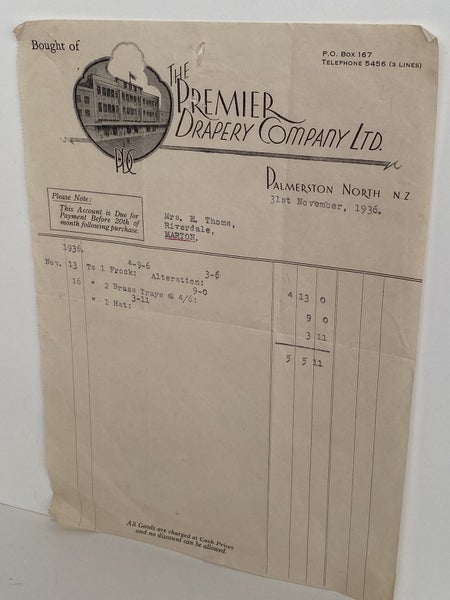 Bought of
P.O. Box 167
Telephone 5456 (3 lines)
The
Premier
Drapery Company Ltd.
PDC
Palmerston North N.Z.
31st November, 1936.
Please Note:
This Account is Due for
Payment Before 20th of
month following purchase.
Mrs. E. Thoms,
Riverdale,
MARTON.
1936.
Nov. 13 To 1 Frock: 4-9-6 Alteration: 3-6 4 13 0
16 " 2 Brass Trays @ 4/6: 9-0 9 0
" 1 Hat: 3-11 3 11
5 5 11
All Goods are charged at Cash Prices
and no discount can be allowed.